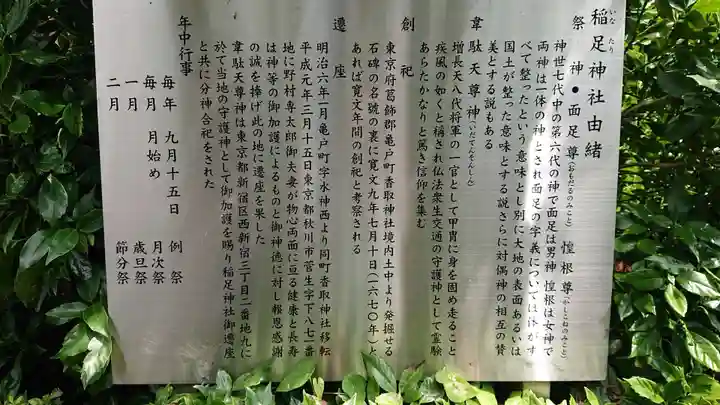 稲足神社由緒
いな たり
祭 神 ● 面足尊(おもだるのみこと) 惶根尊(かしこねのみこと)
神世七代中の第六代の神で面足は男神 惶根は女神で
両神は一体の神とされ面足の字義については体がす
べて整ったという意味とし別に大地の表面あるいは
国土が整った意味とする説さらに対偶神の相互の賛
美とする説もある
韋駄天尊神(いだてんそんしん)
増長天八代将軍の一官として甲冑に身を固め走ること
疾風の如くと称され仏法衆生交通の守護神として霊験
あらたかなりと篤き信仰を集む
創 祀
東京府葛飾郡亀戸町香取神社境内土中より発掘せる
石碑の名號の裏に寛文九年七月十日(一六七〇年)と
あれば寛文年間の創祀と考察される
遷 座
明治六年一月亀戸町字水神西より同町香取神社移転
平成元年三月十五日東京都秋川市菅生字下八七一番
地に野村専太郎御夫妻が物心両面に亘る健康と長寿
は神等の御加護によるものと御神徳に対し報恩感謝
の誠を捧げ此の地に遷座を果した
韋駄天尊神は東京都新宿区西新宿三丁目二番地九に
於て当地の守護神として御加護を賜り稲足神社御遷座
と共に分神合祀をされた
年中行事
毎年 九月十五日 例 祭
毎月 月始め 月次祭
一月 歳旦祭
二月 節分祭